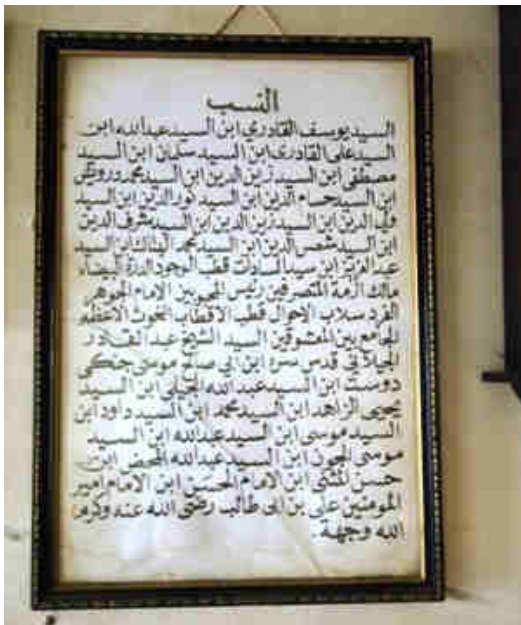 النسب
السيد يوسف القادرى ابن السيد عبدالله ابن
السيد على القادرى ابن السيد سلمان ابن السيد
مصطفى ابن السيد زين الدين ابن السيد محمد درويش
ابن السيد حسام الدين ابن السيد نور الدين ابن السيد
ولي الدين ابن السيد زين الدين ابن السيد شرف الدين
ابن السيد شمس الدين ابن السيد محمد الهتاك ابن السيد
عبد العزيز ابن سيد السادات قطب الوجود الدرة البيضاء
مالك أزمة المتصرفين رئيس المحبوبين الامام الجوهر
الفرد سلاب الاحوال قطب الاقطاب الغوث الاعظم
الجامع بين المعشوقين السيد الشيخ عبد القادر
الجيلاني قدس سره ابن ابي صالح موسى جنكي
دوست ابن السيد عبد الله الجيلى ابن السيد
يحيى الزاهد ابن السيد محمد ابن السيد داود ابن
السيد موسى ابن السيد عبدالله ابن السيد
موسى الجون ابن السيد عبدالله المحض ابن
حسن المثنى ابن الامام الحسن ابن الامام امير
المومنين على بن ابى طالب رضى الله عنه وكرم
الله وجهة .